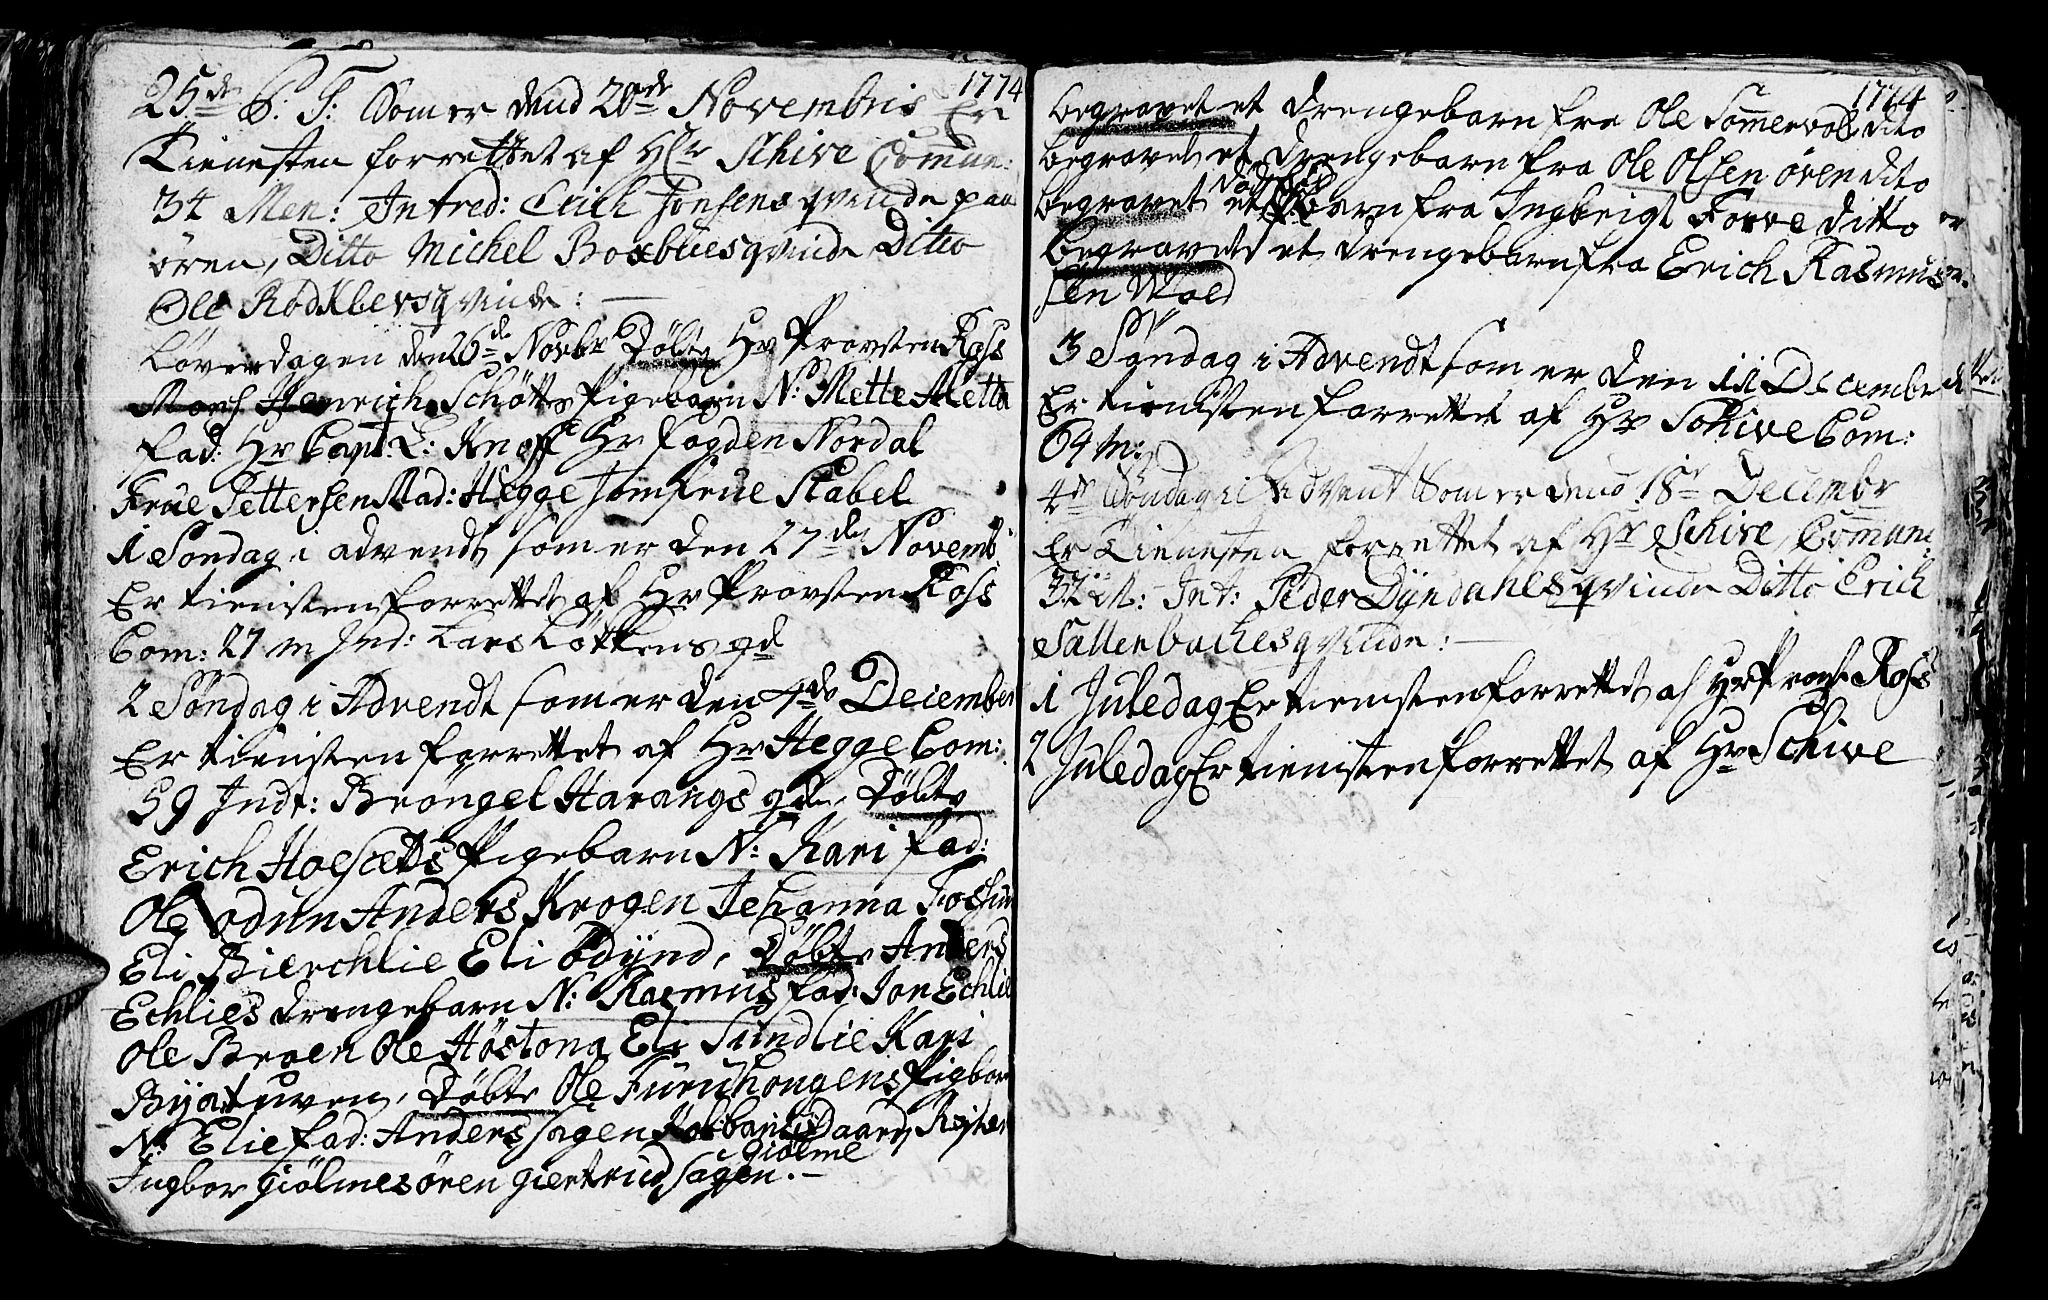 1774
25de P: T: Som er dend 20de Novembris Er
Tienesten forrettet af Hr Schive Comun:
34 Men: Intred: Erich Jonsens qvinde paa
ören, Ditto Michel Boxbues qvinde Ditto
Ole Rödkbersqvinde: —
Löverdagen den 26de Novbr Döbte Hr Provsten Ross
Mons Henrich Schötts Pigebarn N: Mette Aletta
fad: Hr Capt: L: Knoff Hr Fogden Nordal
Frue Pettersen Mad: Hegge Jomfrue Stabel
1 Söndag i advendt som er den 27de Novemb
Er tienisten forrettet af Hr Provsten Ross
Com: 27 m Ind: Lars Lökkens qd
2 Söndag i Advendt som er den 4de December
Er tienisten forrettet af Hr Hegge Com:
59 Indt: Bröngel Harangs qd. Döbte
Erich Hoesets Pigebarn N: Kari fad:
Ole Anders Krogen Jehanna Fossum
Eli Bierchlie Eli Ödÿnd, Döbte Anders
Echlies drengebarn N: Rasmus fad: Jon Echlie
Ole Broen Ole Höstona Eli Sundlie Kari
Bÿatuven, Döbte Ole Furuhougens Pigbarn
N: Elie fad: Anders sagen
Giölme
Ingbor Giölmesören giertrud sagen. —
1774
begravet et drengebarn fra Ole Somervold dito
begravet et drengebarn fra Ole Olsen ören dito
begravet et barn fra Ingbrigt Forve ditto
begravet et drengebarn fra Erich Rasmus
sen Wold
3 Söndag i Advendt som er den 11 Decembr
Er tienisten forrettet af Hr Schive Com:
64 m:
4de Söndag i Advent Som er dend 18de Decembr
Er Tienesten forrettet af Hr Schive, Comuni
32 M: Int: Peder Dÿndahls qvinde Ditto Erich
Sallenbachesqvinde: —
1 Juledag Er tienisten forrettet af Hr Provst Ross
2 Juledag Er tienisten forrettet af Hr Schive